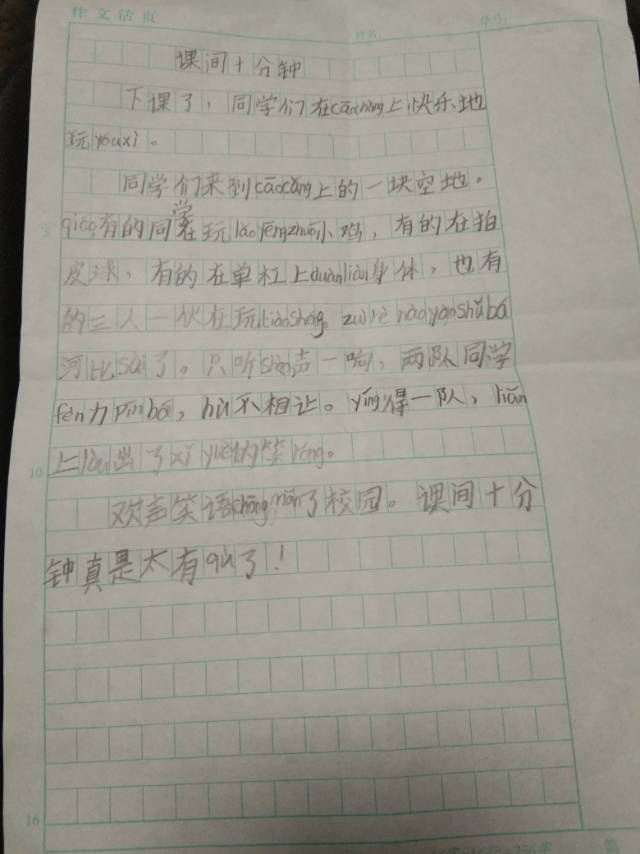 作文活页
姓名:
学号:
课间十分钟
下课了，同学们在cāochǎng上快乐地
玩yóuxì。
同学们来到cāocǎng上的一块空地。
有的同学在玩lǎo yīngzhuō小鸡，有的在拍
5
皮球，有的在单杠上duànliàn身体，也有
的三人一伙在玩tiàoshéng。zuì rè nào yào shǔ bá
河比sài了。只听shào声一响，两队同学
fèn力pīn bó，hù不相让。yíng得一队，liǎn
上lòu出了xǐ yuè的笑róng。
10
欢声笑语chōng mǎn了校园。课间十分
钟真是太有qù了！
16